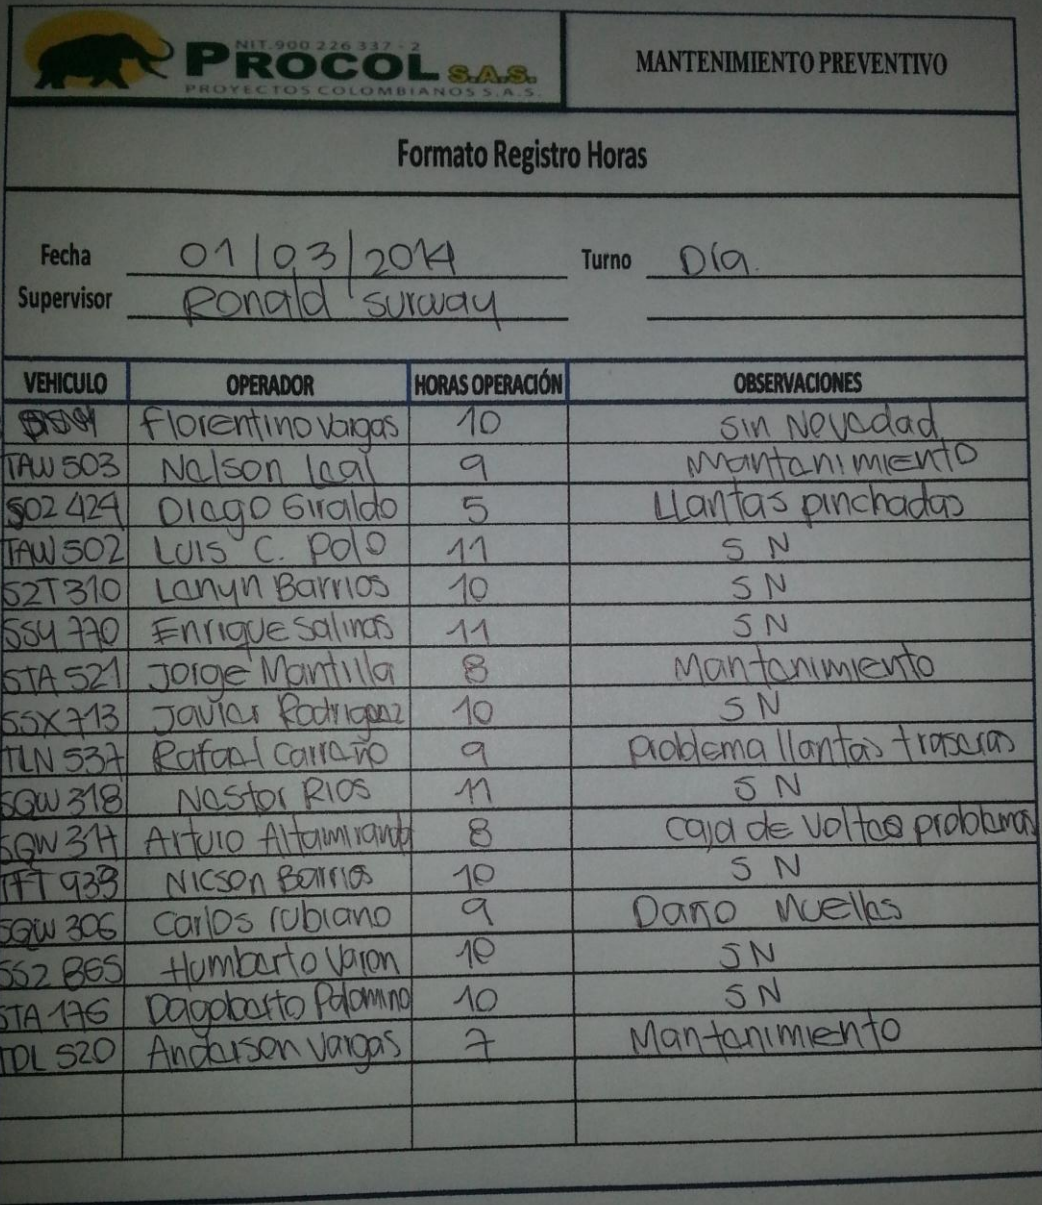 NIT.900 226 337 - 2
PROCOL S.A.S.
PROYECTOS COLOMBIANOS S.A.S.
MANTENIMIENTO PREVENTIVO
Formato Registro Horas
Fecha 01/03/2014 Turno Día.
Supervisor Ronald Surway
VEHICULO OPERADOR HORAS OPERACIÓN OBSERVACIONES
Florentino Vargas 10 Sin Novedad
TAW 503 Nelson Leal 9 Mantenimiento
S02 424 Diego Giraldo 5 Llantas pinchadas
TAW 502 Luis C. Polo 11 S N
S2T310 Lenyn Barrios 10 S N
SSY 770 Enrique Salinas 11 S N
STA 521 Jorge Mantilla 8 Mantenimiento
SSX713 Javier Rodriguez 10 S N
TLN 537 Rafael Carreño 9 problema llantas traseras
SQW 318 Nestor Rios 11 S N
SQW 317 Arturo Altamirando 8 caja de volteo problemas
TFT 939 Nicson Barrios 10 S N
SQW 306 Carlos rubiano 9 Daño Muelles
SS2 865 Humberto Varon 10 S N
STA 176 Dagoberto Palomino 10 S N
TDL 520 Anderson Vargas 7 Mantenimiento